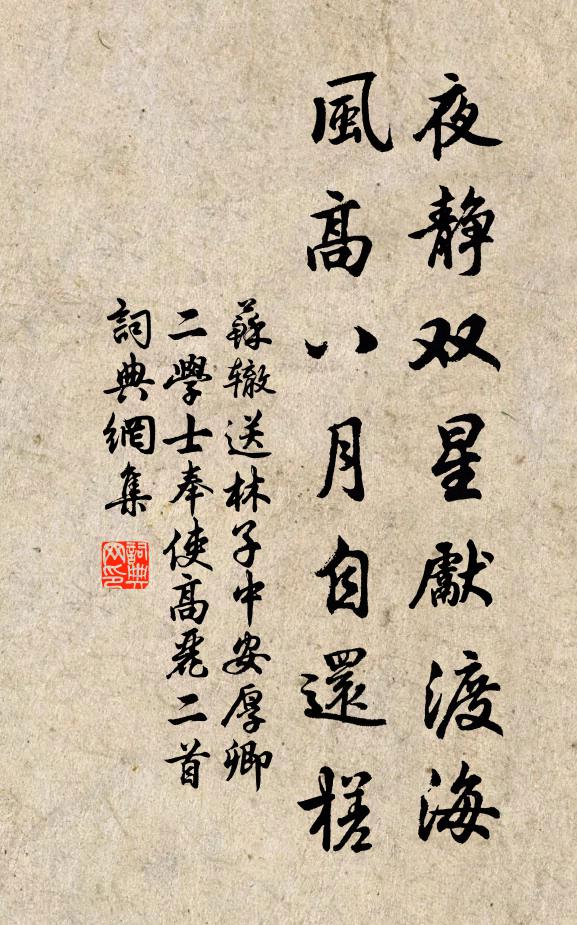 夜静双星獻渡海
風高八月自還槎
蘇轍送林子中安厚卿
二學士奉使高麗二首
詞典網集
詞典
网印